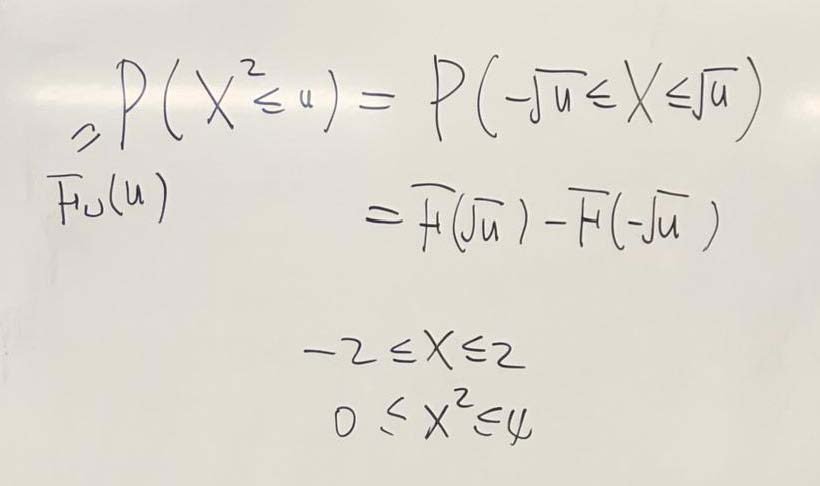 = P(X² ≤ u) = P(-√u ≤ X ≤ √u)
F_U(u)
= F(√u) - F(-√u)
-2 ≤ X ≤ 2
0 ≤ X² ≤ 4